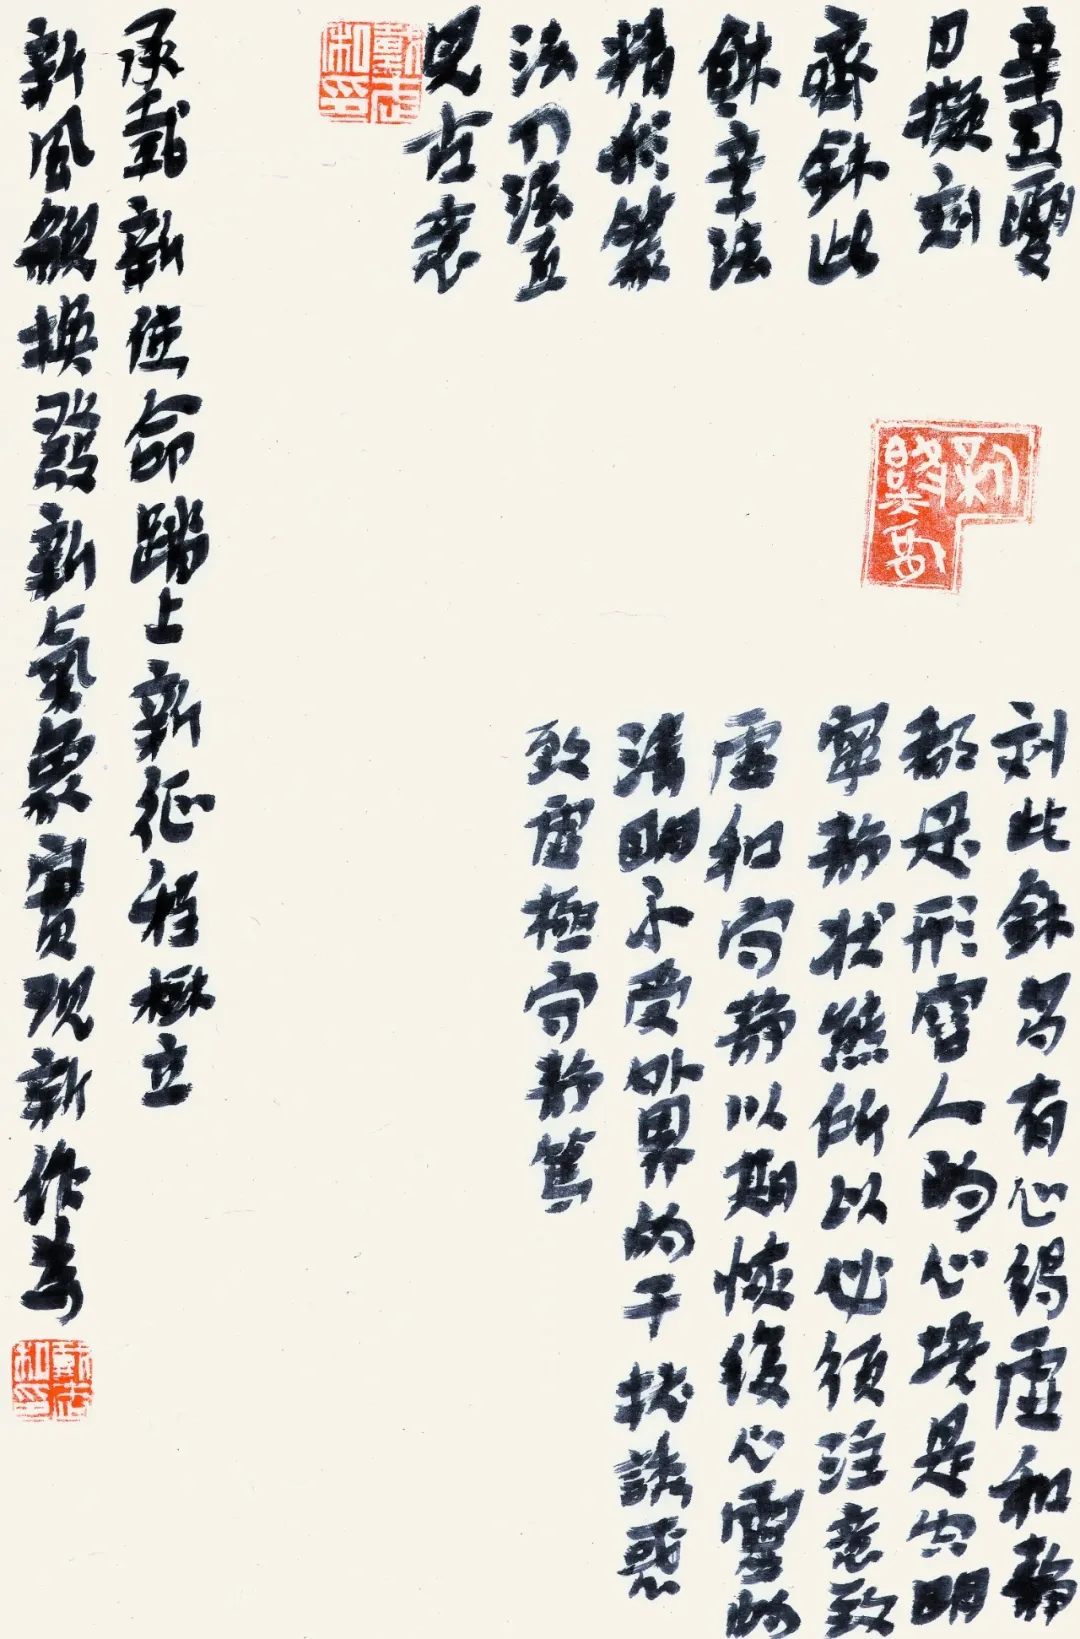 辛丑夏
日擬刻
齊鉢此
鉢章法
精彩篆
法刀法直
見古意
刻此鉢為有心得虛和静
都是形容人的心境是空明
寧静状態所以必须注意致
虛和守静以期恢復心靈的
清明不受外界的干扰誘惑
致虛極守静篤
承載新使命踏上新征程樹立
新風貌換發新氣象實现新作為
戴武和印